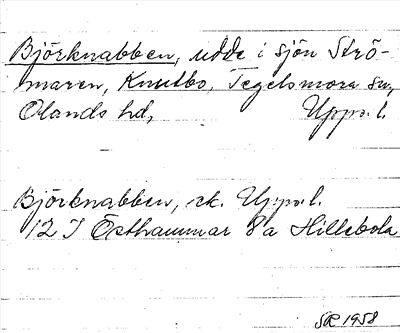 Björknabben, udde i sjön Strö-
maren, Knutbo, Tegelsmora sn,
Olands hd, Upps. l.
Björknabben, ek. Upps. l.
12 I Östhammar 8 a Hillebola
SR 1958